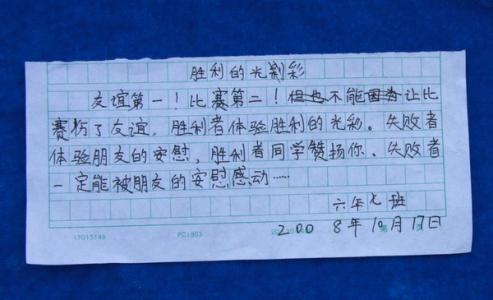 胜利的光彩
友谊第一！比赛第二！但也不能让比
赛伤了友谊，胜利者体验胜利的光彩。失败者
体验朋友的安慰，胜利者同学赞扬你、失败者
一定能被朋友的安慰感动……
六年七班
2008年10月17日
17015148
PC1803